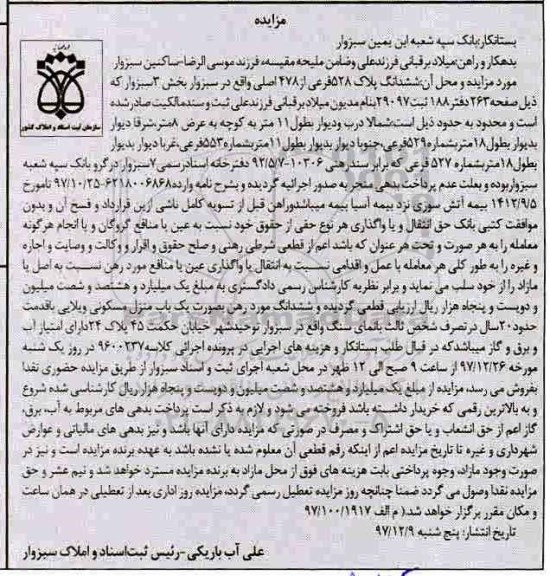 مزایده
بستانکار:بانک سپه شعبه ابن یمین سبزوار
بدهکار و راهن:میلادبرقبانی فرزندعلی وضامن ملیحه مقیسه،فرزند موسی الرضا-ساکنین سبزوار
مورد مزایده و محل آن:ششدانگ پلاک ۵۲۸فرعی از۴۷۸ اصلی واقع در سبزوار بخش ۳سبزوار که
ذیل صفحه۲۶۳دفتر۱۸۸ ثبت۲۹۰۹۷بنام مدیون میلادبرقبانی فرزندعلی ثبت و سندمالکیت صادر شده
است و محدود به حدود ذیل است:شمالا درب ودیوار بطول۱۱ متر به کوچه به عرض ۸متر،شرقا دیوار
بدیوار بطول۱۸متربشماره۵۲۹فرعی،جنوبا دیوار بدیوار بطول۱۱متربشماره۵۵۳فرعی،غربا دیوار بدیوار
بطول۱۸متربشماره ۵۲۷ فرعی که برابر سند رهنی ۱۰۳۰۶-۹۲/۵/۷ دفترخانه اسنادرسمی۷سبزوار در گرو بانک سپه شعبه
سبزواربوده و بعلت عدم پرداخت بدهی منجر به صدور اجرائیه گردیده و بشرح نامه وارده۶۲۱۸۰۰۶۸۶۸-۹۷/۱۰/۲۵ تامورخ
۱۴۱۲/۹/۵ بیمه آتش سوزی نزد بیمه آسیا بیمه میباشدوراهن قبل از تسویه کامل ناشی ازین قرارداد و فسخ آن و بدون
موافقت کتبی بانک حق انتقال و یا واگذاری هر نوع حقی از حقوق خود نسبت به عین یا منافع گروگان و یا انجام هرگونه
معامله را به هر صورت و تحت هر عنوان که باشد اعم از قطعی شرطی رهنی و صلح حقوق و اقرار و وکالت و وصایت و اجاره
و غیره را به طور کلی هر معامله یا عمل و اقدامی نسبت به انتقال یا واگذاری عین یا منافع مورد رهن نسبت به اصل یا
مازاد را از خود سلب می نماید و برابر نظریه کارشناس رسمی دادگستری به مبلغ یک میلیارد و هشتصد و شصت میلیون
و دویست و پنجاه هزار ریال ارزیابی قطعی گردیده و ششدانگ مورد رهن بصورت یک باب منزل مسکونی ویلایی باقدمت
حدود۲۰سال درتصرف شخص ثالث بانمای سنگ واقع در سبزوار توحیدشهر خیابان حکمت ۴۵ پلاک ۲۴دارای امتیاز آب
و برق و گاز میباشدکه در قبال طلب بستانکار و هزینه های اجرایی در پرونده اجرائی کلاسه۹۶۰۰۲۳۷ در روز یک شنبه
مورخه ۹۷/۱۲/۲۶ از ساعت ۹ صبح الی ۱۲ ظهر در محل شعبه اجرای ثبت و اسناد سبزوار از طریق مزایده حضوری نقدا
بفروش می رسد، مزایده از مبلغ یک میلیارد و هشتصد و شصت میلیون و دویست و پنجاه هزار ریال کارشناسی شده شروع
و به بالاترین رقمی که خریدار داشته باشد فروخته می شود و لازم به ذکر است پرداخت بدهی های مربوط به آب، برق،
گاز اعم از حق انشعاب و یا حق اشتراک و مصرف در صورتی که مزایده دارای آنها باشد و نیز بدهی های مالیاتی و عوارض
شهرداری و غیره تا تاریخ مزایده اعم از اینکه رقم قطعی آن معلوم شده یا نشده باشد به عهده برنده مزایده است و نیز در
صورت وجود مازاد، وجوه پرداختی بابت هزینه های فوق از محل مازاد به برنده مزایده مسترد خواهد شد و نیم عشر و حق
مزایده نقدا وصول می گردد ضمنا چنانچه روز مزایده تعطیل رسمی گردد،مزایده روز اداری بعد از تعطیلی در همان ساعت
و مکان مقرر برگزار خواهد شد.( م الف ۹۷/۱۰۰/۱۹۱۷
تاریخ انتشار: پنج شنبه ۹۷/۱۲/۹
علی آب باریکی-رئیس ثبت اسناد و املاک سبزوار
سازمان ثبت اسناد و املاک کشور